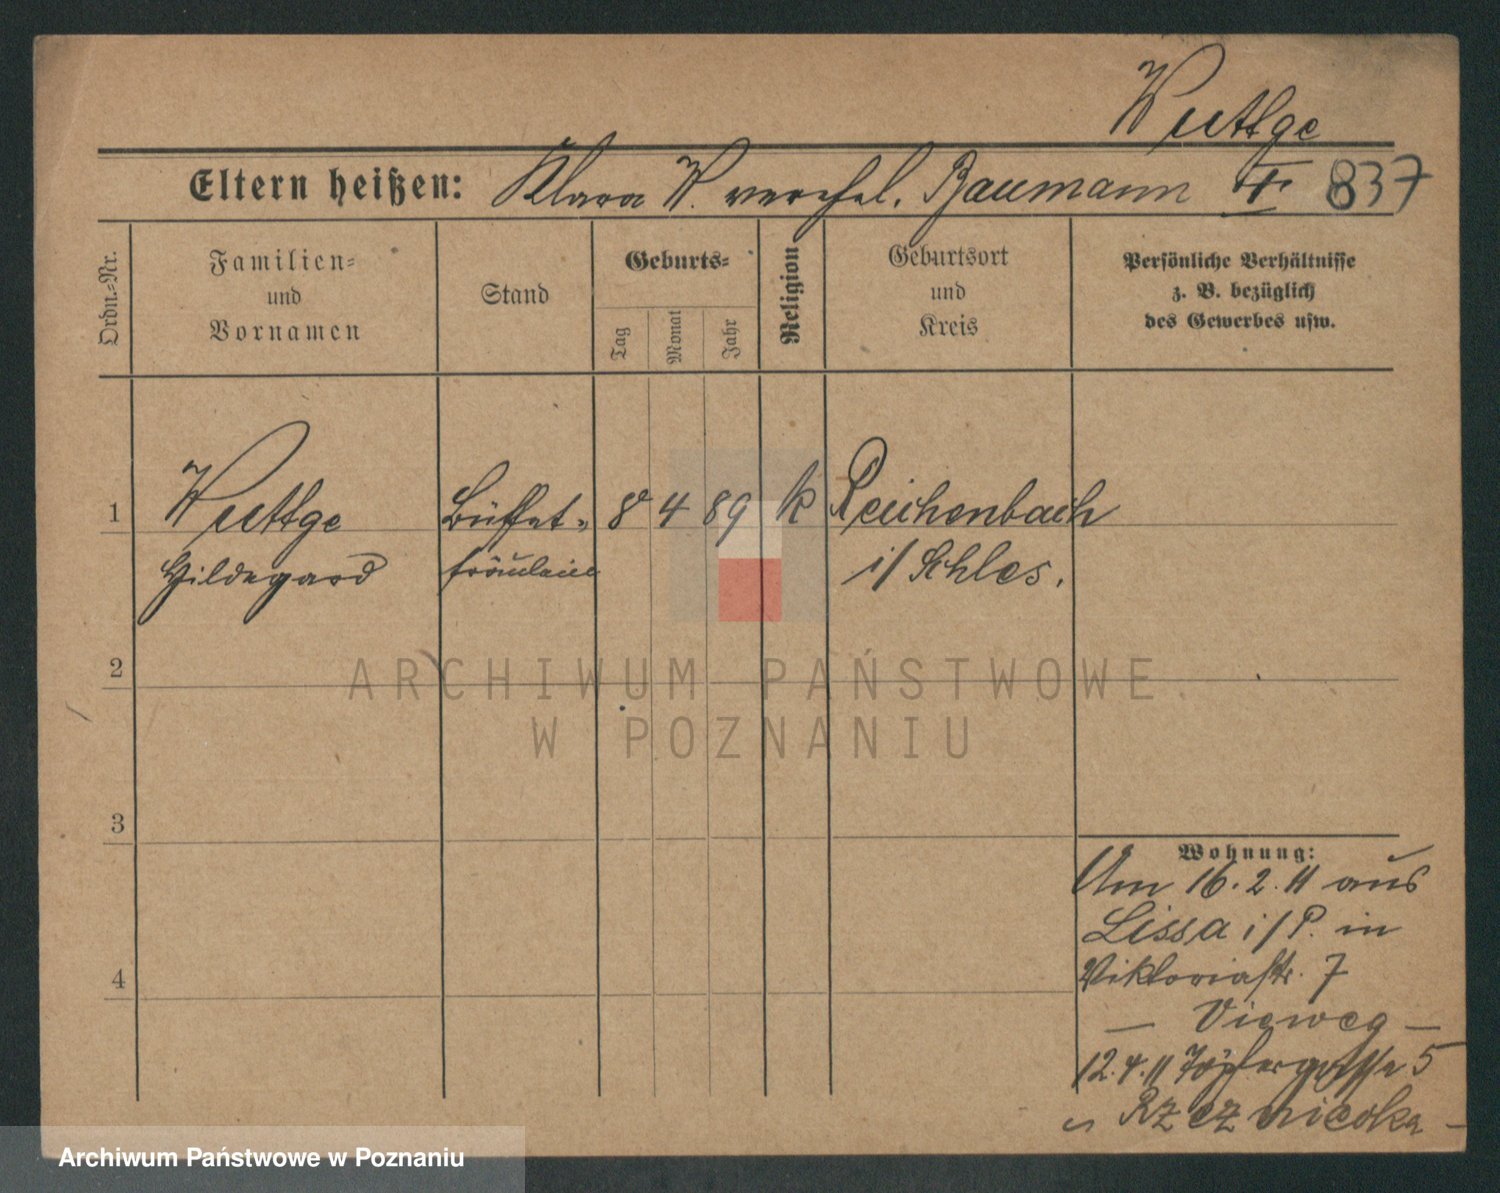 Wuttge
Eltern heißen: Klara W. verehel. Baumann 837
Ordn.-Nr.
Familien-
und
Vornamen
Stand
Geburts-
Tag
Monat
Jahr
Religion
Geburtsort
und
Kreis
Persönliche Verhältnisse
z. B. bezüglich
des Gewerbes usw.
1 Wuttge Büffet- 8 4 89 k Reichenbach
Hildegard fräulein i/Schles.
2
ARCHIWUM PAŃSTWOWE
W POZNANIU
3
Wohnung:
Am 16.2.11 aus
Lissa i/P. in
Viktoriastr. 7
— Vieweg —
4
12.4.11 Töpfergasse 5
Archiwum Państwowe w Poznaniu